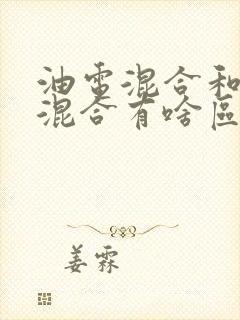 油電混合和
混合有啥區
姜霖